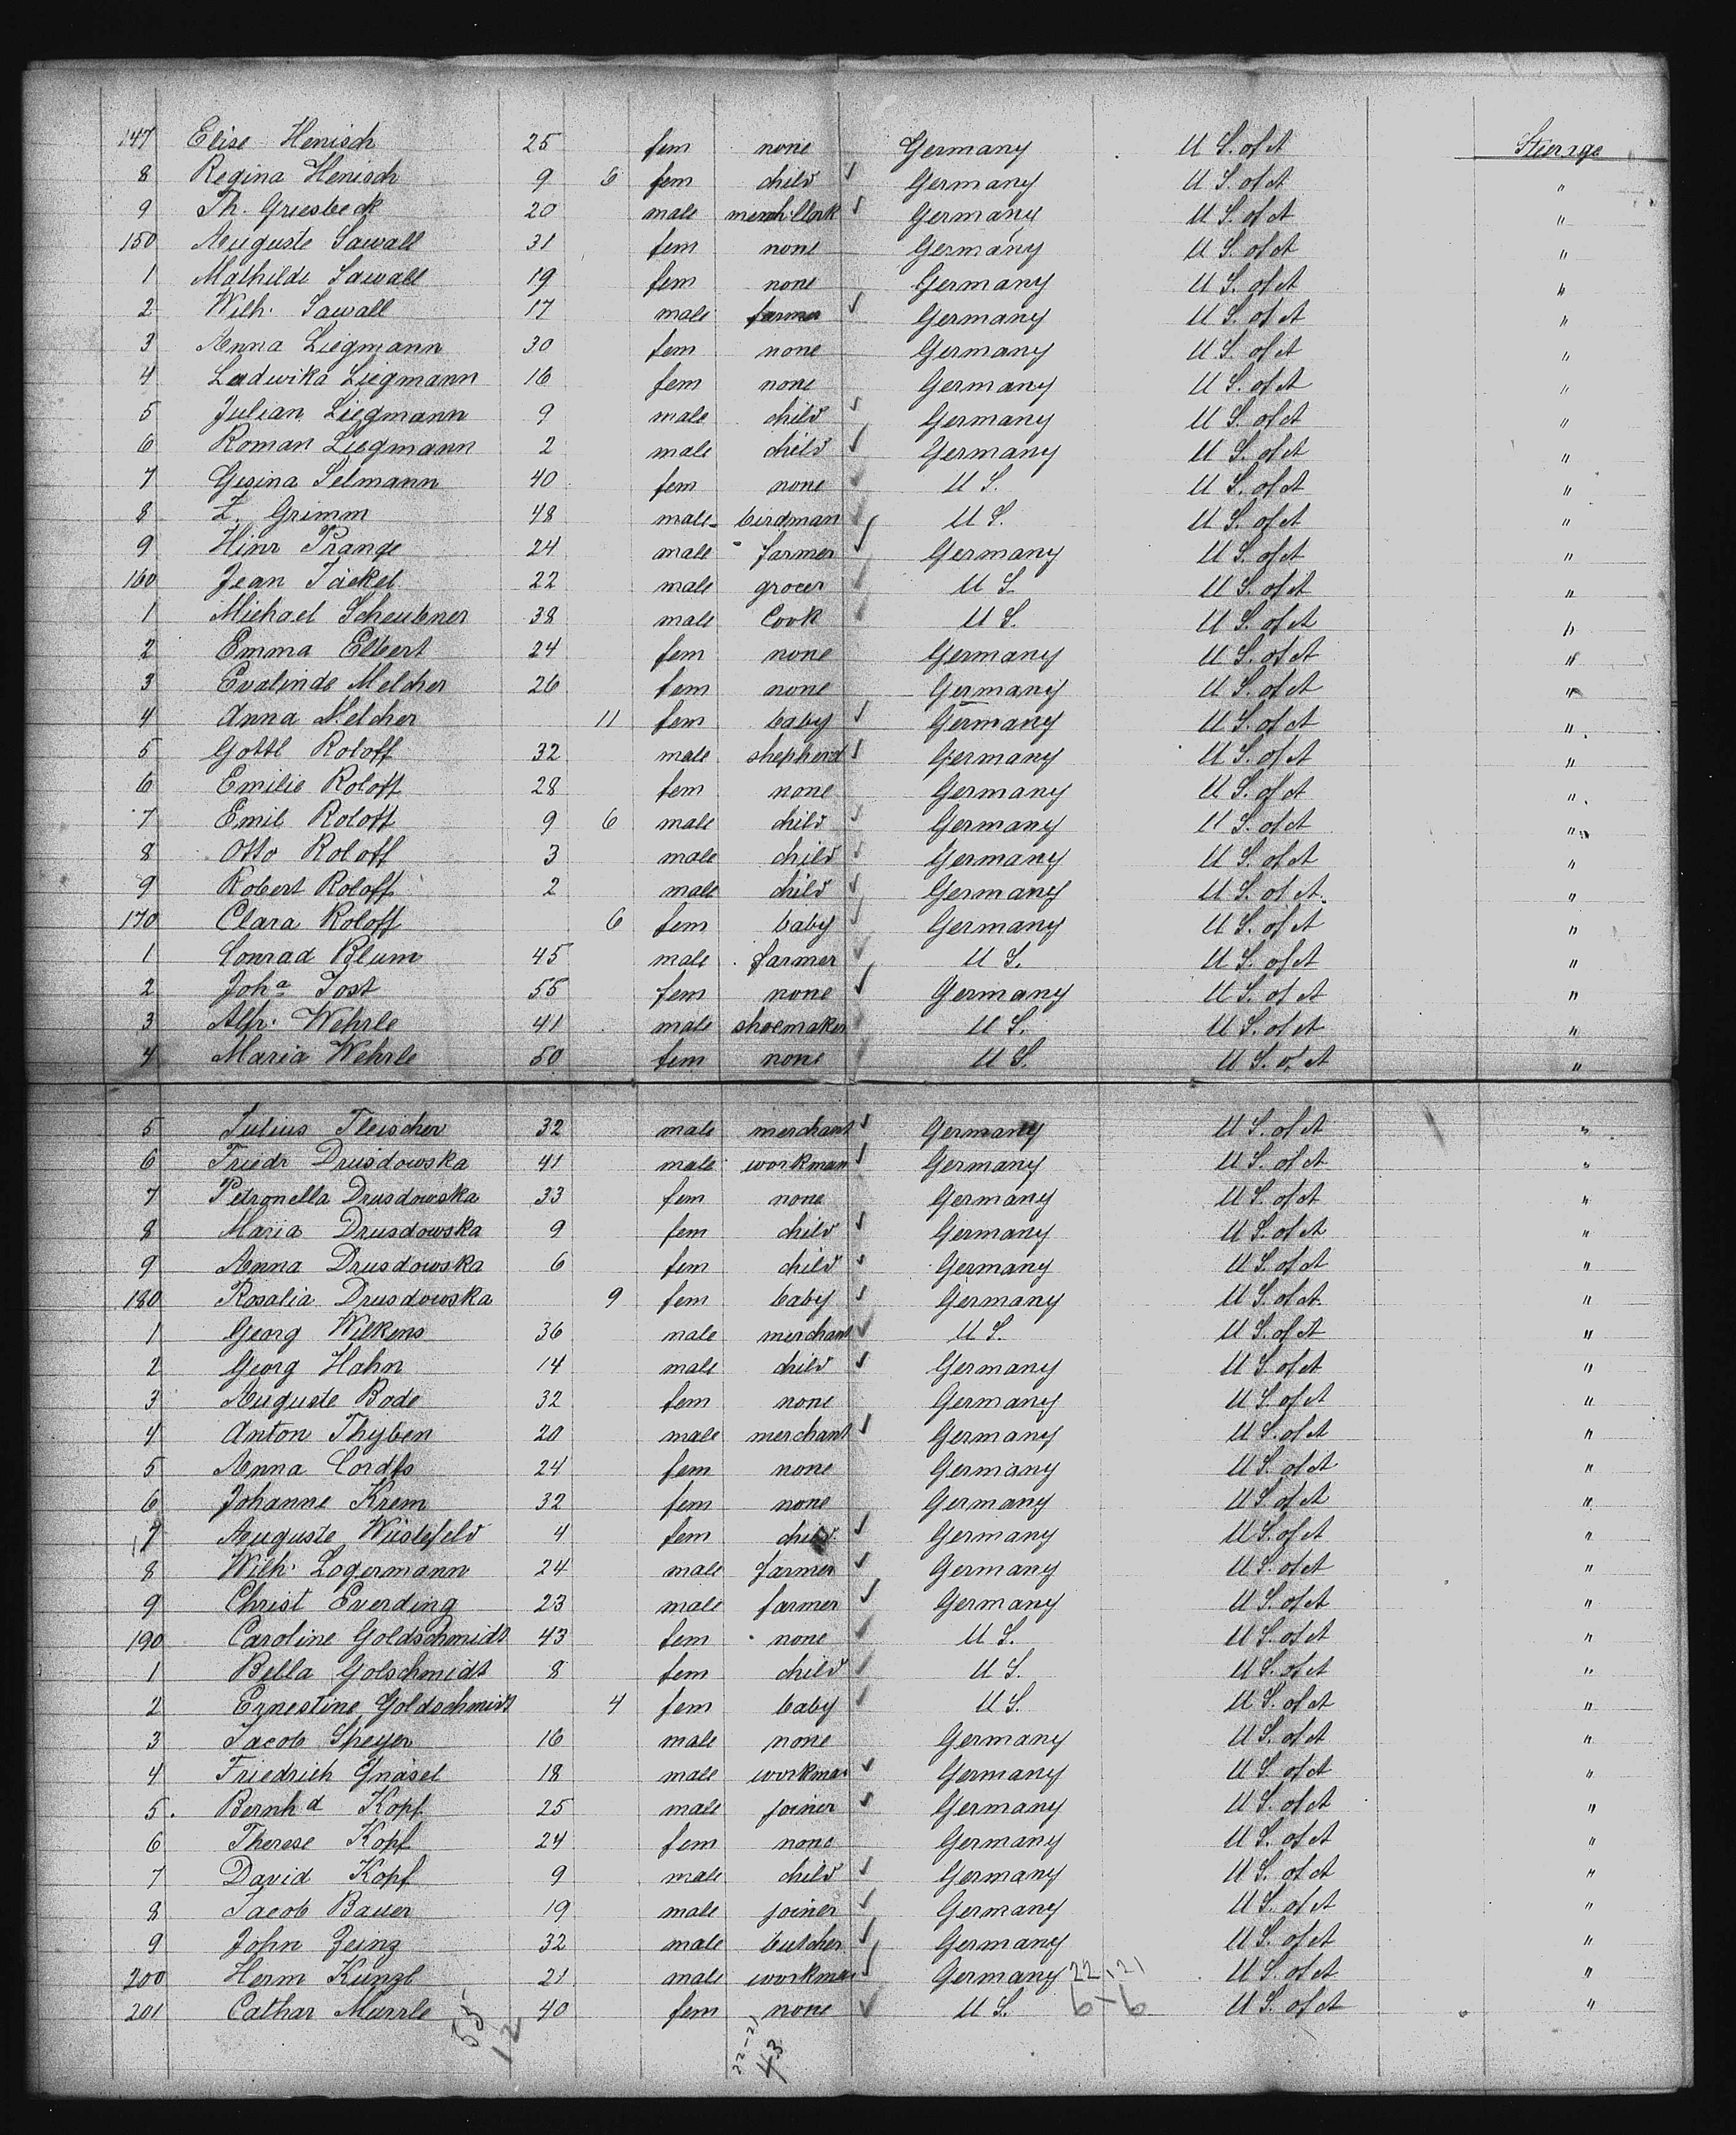 147 Elise Henisch 25 fem none Germany U S. of A Steerage
8 Regina Henisch 9 6 fem child ✓ Germany U S. of A "
9 Th. Griesbeck 20 male merch. Clerk ✓ Germany U S. of A "
150 Auguste Sawall 31 fem none Germany U S. of A "
1 Mathilde Sawall 19 fem none Germany U S. of A "
2 Wilh. Sawall 17 male farmer ✓ Germany U S. of A "
3 Anna Liegmann 30 fem none Germany U S. of A "
4 Ludwika Liegmann 16 fem none Germany U S. of A "
5 Julian Liegmann 9 male child ✓ Germany U S. of A "
6 Roman Liegmann 2 male child ✓ Germany U S. of A "
7 Gesina Selmann 40 fem none ✓ U S. U S. of A "
8 L. Grimm 48 male birdman ✓ U S. U S. of A "
9 Hinr Prange 24 male farmer ✓ Germany U S. of A "
160 Jean Jäckel 22 male grocer ✓ U S. U S. of A "
1 Michael Scheubner 38 male Cook ✓ U S. U S. of A "
2 Emma Elbert 24 fem none Germany U S. of A "
3 Evalinde Melcher 26 fem none Germany U S. of A "
4 Anna Melcher 11 fem baby ✓ Germany U S. of A "
5 Gottl Roloff 32 male shepherd ✓ Germany U S. of A "
6 Emilie Roloff 28 fem none Germany U S. of A "
7 Emil Roloff 9 6 male child ✓ Germany U S. of A "
8 Otto Roloff 3 male child ✓ Germany U S. of A "
9 Robert Roloff 2 male child ✓ Germany U S. of A. "
170 Clara Roloff 6 fem baby ✓ Germany U S. of A "
1 Conrad Blum 45 male farmer ✓ U S. U S. of A "
2 Joha Jost 55 fem none ✓ Germany U S. of A "
3 Alfr. Wehrle 41 male shoemaker ✓ U S. U S. of A "
4 Maria Wehrle 50 fem none ✓ U S. U S. of A "
5 Julius Fleischer 32 male merchant ✓ Germany U S. of A "
6 Friedr Drusdowska 41 male workman ✓ Germany U S. of A "
7 Petronella Drusdowska 33 fem none Germany U S. of A "
8 Maria Drusdowska 9 fem child ✓ Germany U S. of A "
9 Anna Drusdowska 6 fem child ✓ Germany U S. of A "
180 Rosalia Drusdowska 9 fem baby ✓ Germany U S. of A "
1 Georg Wilkens 36 male merchant ✓ U S. U S. of A "
2 Georg Hahn 14 male child ✓ Germany U S. of A "
3 Auguste Bode 32 fem none Germany U S. of A "
4 Anton Thyben 20 male merchant ✓ Germany U S. of A "
5 Anna Cordts 24 fem none Germany U S. of A "
6 Johanne Krem 32 fem none Germany U S. of A "
7 Auguste Wüstefeld 4 fem child ✓ Germany U S. of A "
8 Wilh. Logermann 24 male farmer ✓ Germany U S. of A "
9 Christ Everding 23 male farmer ✓ Germany U S. of A "
190 Caroline Goldschmidt 43 fem none ✓ U S. U S. of A "
1 Bella Golschmidt 8 fem child ✓ U S. U S. of A "
2 Ernestine Goldschmidt 4 fem baby ✓ U S. U S. of A "
3 Jacob Speyer 16 male none Germany U S. of A "
4 Friedrich Gnäsel 18 male workman ✓ Germany U S. of A "
5. Bernhd Kopf 25 male joiner ✓ Germany U S. of A "
6 Therese Kopf 24 fem none Germany U S. of A "
7 David Kopf 9 male child ✓ Germany U S. of A "
8 Jacob Bauer 19 male joiner ✓ Germany U S. of A "
9 John Zeinz 32 male butcher ✓ Germany U S. of A "
200 Herm Künzl 21 male workman ✓ Germany 22 21 U S. of A "
201 Cathar Murrle 40 fem none ✓ U S. 6-6 U S. of A "
55 22-21
12 43